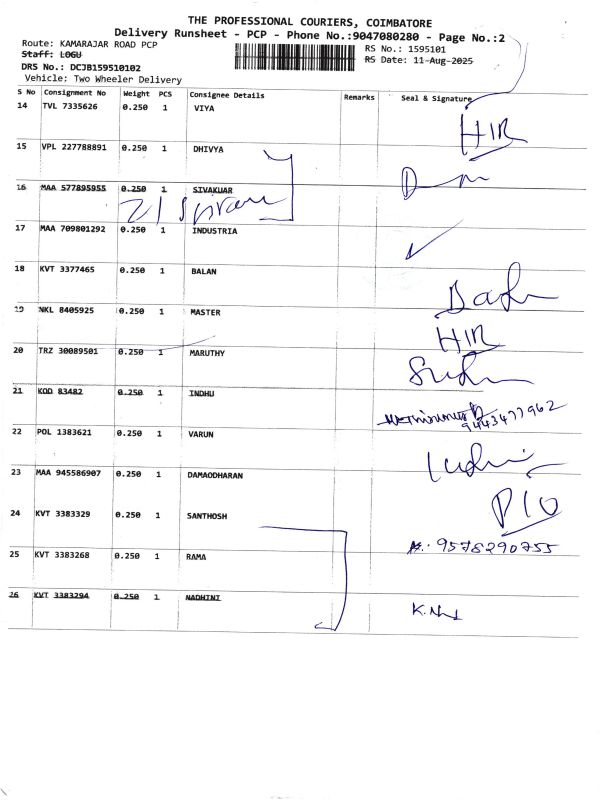 THE PROFESSIONAL COURIERS, COIMBATORE
Delivery Runsheet - PCP - Phone No.:9047080280 - Page No.:2
Route: KAMARAJAR ROAD PCP RS No.: 1595101
Staff: LOGU RS Date: 11-Aug-2025
DRS No.: DCJB159510102
Vehicle: Two Wheeler Delivery
S No Consignment No Weight PCS Consignee Details Remarks Seal & Signature
14 TVL 7335626 0.250 1 VIYA
H1R
15 VPL 227788891 0.250 1 DHIVYA
16 MAA 577895955 0.250 1 SIVAKUAR
17 MAA 709801292 0.250 1 INDUSTRIA
18 KVT 3377465 0.250 1 BALAN
19 NKL 8405925 0.250 1 MASTER
H1R
20 TRZ 30089501 0.250 1 MARUTHY
21 KOD 83482 0.250 1 INDHU
9443477962
22 POL 1383621 0.250 1 VARUN
23 MAA 945586907 0.250 1 DAMAODHARAN
P10
24 KVT 3383329 0.250 1 SANTHOSH
9578290755
25 KVT 3383268 0.250 1 RAMA
26 KVT 3383294 0.250 1 NADHINI